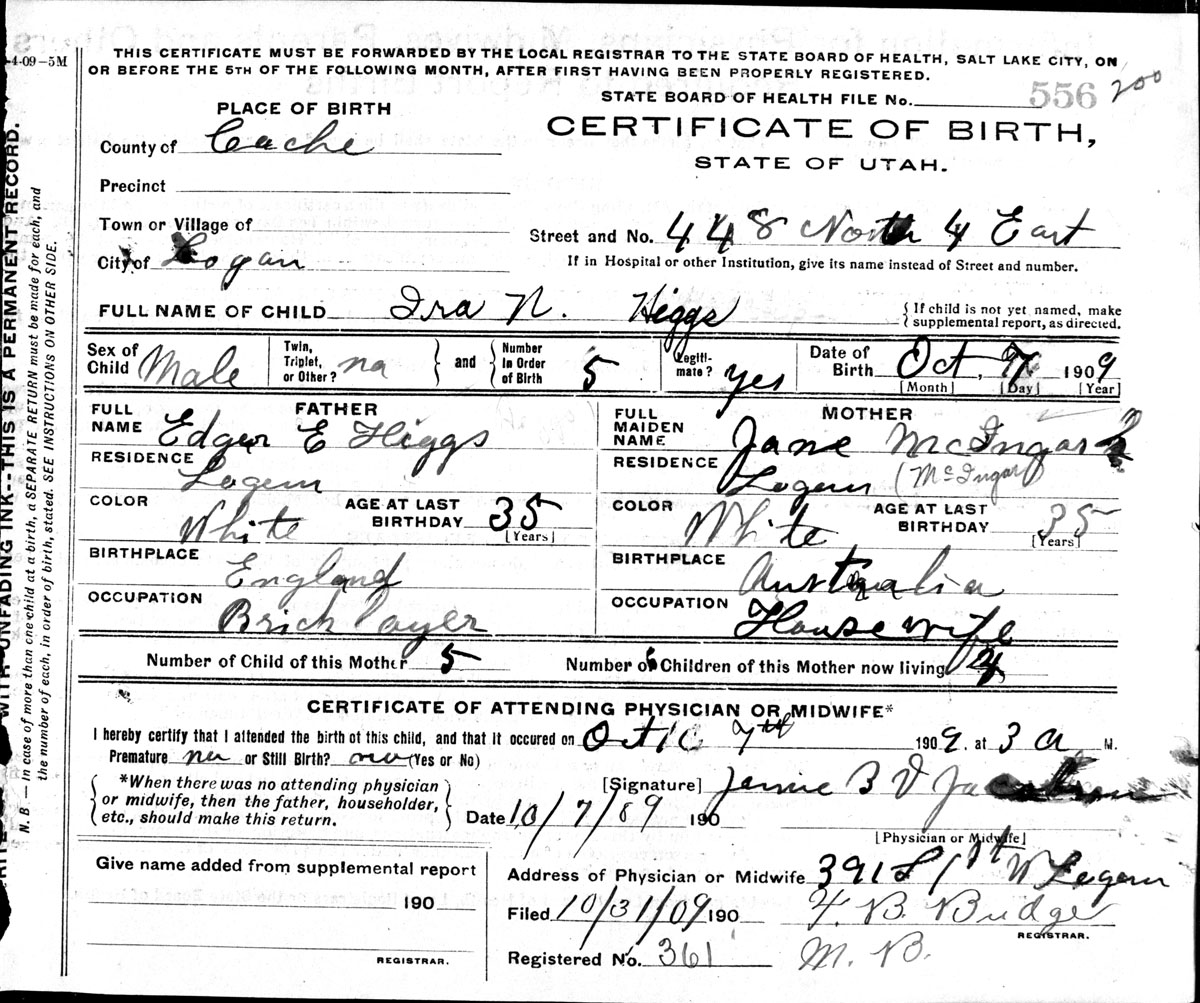 -4-09-5M
THIS CERTIFICATE MUST BE FORWARDED BY THE LOCAL REGISTRAR TO THE STATE BOARD OF HEALTH, SALT LAKE CITY, ON
OR BEFORE THE 5TH OF THE FOLLOWING MONTH, AFTER FIRST HAVING BEEN PROPERLY REGISTERED.
STATE BOARD OF HEALTH FILE No. 556 200
PLACE OF BIRTH
CERTIFICATE OF BIRTH,
STATE OF UTAH.
County of Cache
Precinct
Town or Village of
Street and No. 448 North 4 East
City of Logan
If in Hospital or other Institution, give its name instead of Street and number.
FULL NAME OF CHILD Ira N. Higgs
{If child is not yet named, make
supplemental report, as directed.
Sex of Child Male
Twin, Triplet, or Other? no } and { Number In Order of Birth 5
Legiti- mate? yes
Date of Birth Oct. 7 1909
[Month] [Day] [Year]
FATHER
FULL NAME Edgar E Higgs
RESIDENCE Logan
COLOR White AGE AT LAST BIRTHDAY 35 [Years]
BIRTHPLACE England
OCCUPATION Brick layer
MOTHER
FULL MAIDEN NAME Jane McIngar
RESIDENCE Logan (McIngar)
COLOR White AGE AT LAST BIRTHDAY 35 [Years]
BIRTHPLACE Australia
OCCUPATION House wife
Number of Child of this Mother 5 Number of Children of this Mother now living 4
CERTIFICATE OF ATTENDING PHYSICIAN OR MIDWIFE*
I hereby certify that I attended the birth of this child, and that it occured on 7th 1909. at 3 a M.
Premature no or Still Birth? no (Yes or No)
{*When there was no attending physician
or midwife, then the father, householder,
etc., should make this return.}
[Signature] Jennie B V
Date 10/7/89 190
[Physician or Midwife]
Give name added from supplemental report
190
REGISTRAR.
Address of Physician or Midwife 391 S 1st W Logan
Filed 10/31/09 190 B. Budge
REGISTRAR.
Registered No. 361
WITH UNFADING INK--THIS IS A PERMANENT RECORD.
N. B — In case of more than one child at a birth, a SEPARATE RETURN must be made for each, and
the number of each, in order of birth, stated. SEE INSTRUCTIONS ON OTHER SIDE.